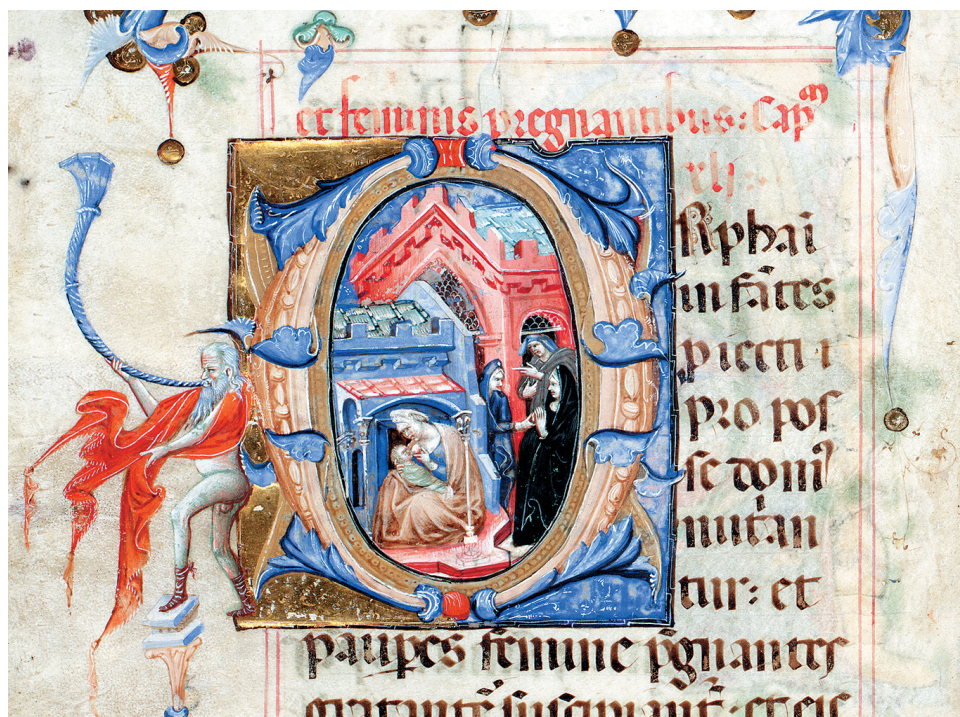 et feminis pregnantibus: Capm
xlij.
ORphai
infātes
piecti ⁊
pro pos
se
nutͥan
tur: et
paup̲es femine p̄gnantes
et eis